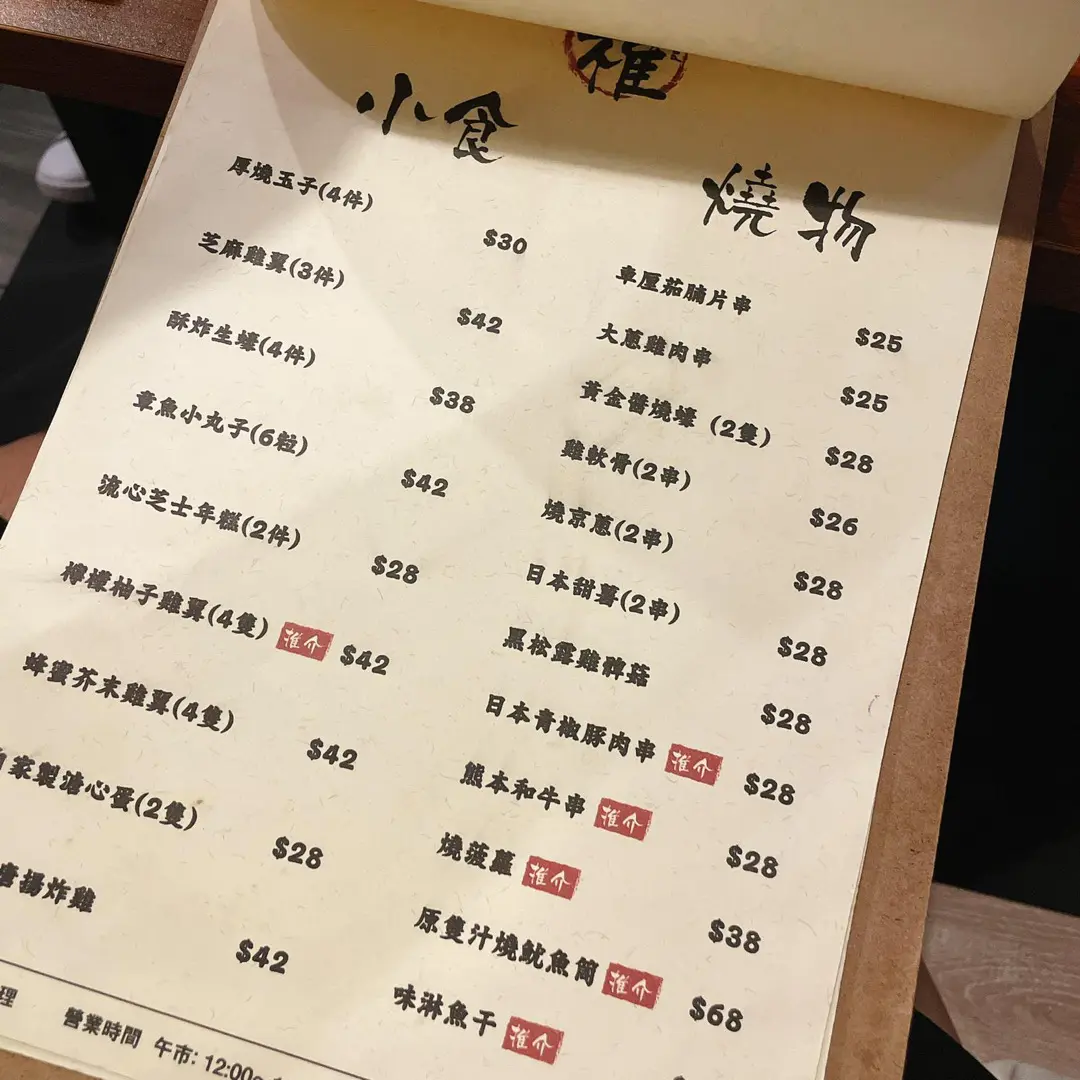 小食
厚燒玉子(4件) $30
芝麻雞翼(3件) $42
酥炸生蠔(4件) $38
章魚小丸子(6粒) $42
流心芝士年糕(2件) $28
檸檬柚子雞翼(4隻) 推介 $42
蜂蜜芥末雞翼(4隻) $42
自家製溏心蛋(2隻) $28
唐揚炸雞 $42
燒物
車厘茄腩片串 $25
大蔥雞肉串 $25
黃金醬燒蠔 (2隻) $28
雞軟骨(2串) $26
燒京蔥(2串) $28
日本甜薯(2串) $28
黑松露雞髀菇 $28
日本青椒豚肉串 推介 $28
熊本和牛串 推介 $28
燒菠蘿 推介 $38
原隻汁燒魷魚筒 推介 $68
味淋魚干 推介
理 營業時間 午市: 12:00